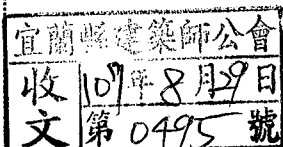 宜蘭縣建築師公會
收文 107年8月29日
第0495號